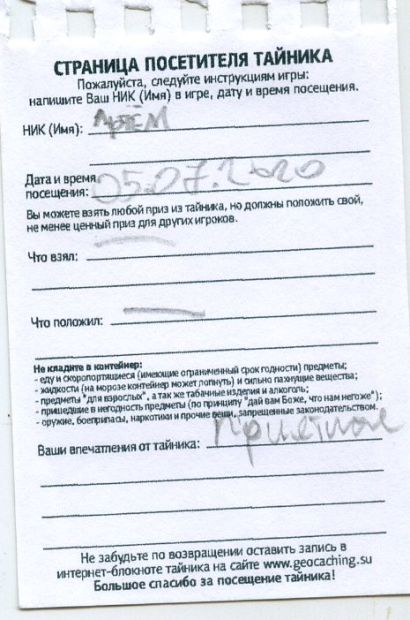 СТРАНИЦА ПОСЕТИТЕЛЯ ТАЙНИКА
Пожалуйста, следуйте инструкциям игры:
напишите Ваш НИК (Имя) в игре, дату и время посещения.
НИК (Имя): Артём
Дата и время
посещения: 05.07.2020
Вы можете взять любой приз из тайника, но должны положить свой,
не менее ценный приз для других игроков.
Что взял: —
Что положил: —
Не кладите в контейнер:
- еду и скоропортящиеся (имеющие ограниченный срок годности) предметы;
- жидкости (на морозе контейнер может лопнуть) и сильно пахнущие вещества;
- предметы "для взрослых", а так же табачные изделия и алкоголь;
- пришедшие в негодность предметы (по принципу "дай вам Боже, что нам негоже");
- оружие, боеприпасы, наркотики и прочие вещи, запрещенные законодательством.
Ваши впечатления от тайника: Приятное
Не забудьте по возвращении оставить запись в
интернет-блокноте тайника на сайте www.geocaching.su
Большое спасибо за посещение тайника!